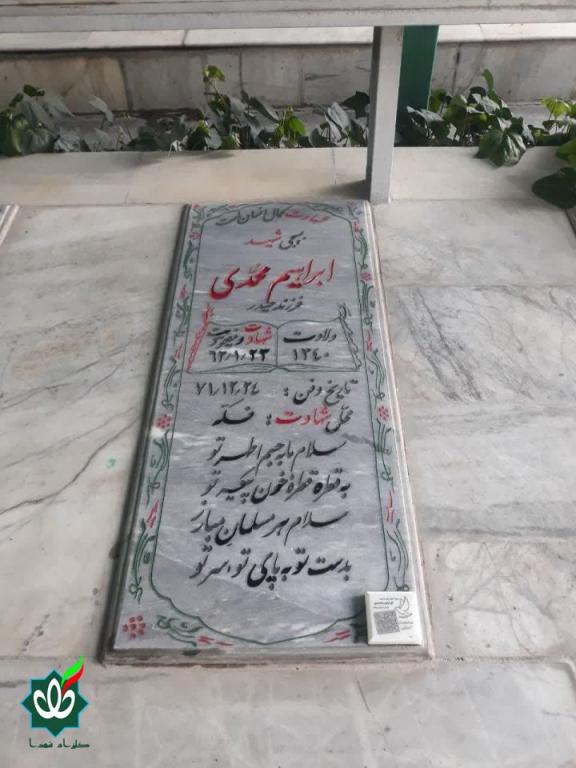 شهادت کمال انسان است
بسیجی شهید
ابراهیم محمدی
فرزند حیدر
ولادت
۱۳۴۰
شهادت
۶۲/۱/۲۳
تاریخ دفن: ۷۱/۱۲/۲۴
محل شهادت: فکه
سلام ما به جسم اطهر تو
به قطره قطره خون پیکر تو
سلام هر مسلمان مبارز
بدست تو به پای تو سر تو
گلزار شهدا